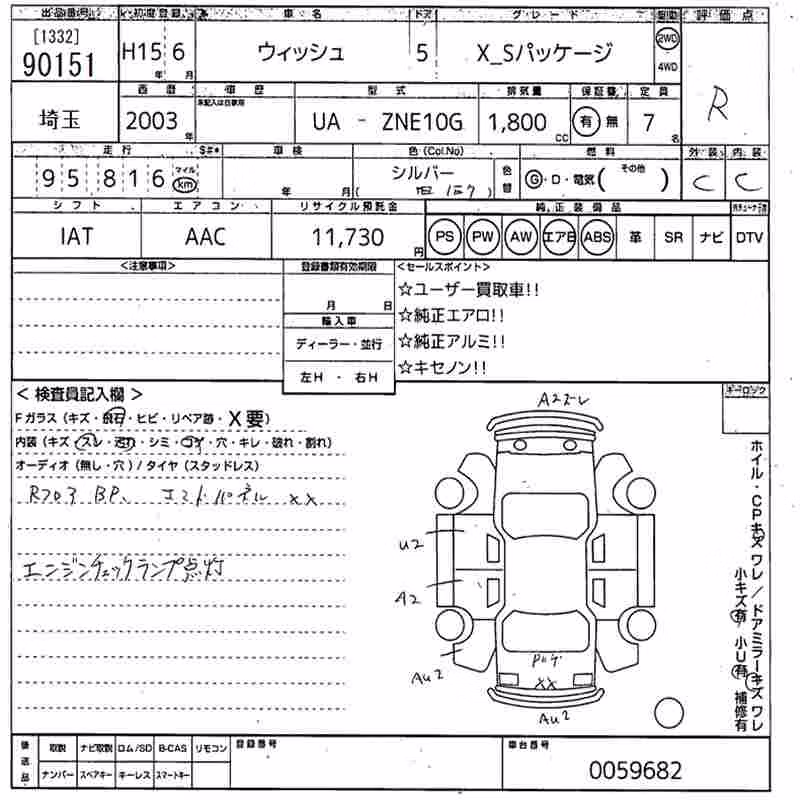 出品番号 初度登録 車名 ドア グレード 駆動 評価点
[1332]
90151 H15年 6月 ウィッシュ 5 X_Sパッケージ 2WD 4WD R
西暦 車歴 型式 排気量 保証書 定員
未記入は自家用
埼玉 2003年 UA - ZNE10G 1,800cc 有 無 7名
走行 S#* 車検 色(Col.No) 燃料 外装 内装
95,816 マイル km 年 月 シルバー 色替 G・D・電気( その他 ) C C
シフト エアコン リサイクル預託金 純正装備品
IAT AAC 11,730円 PS PW AW エアB ABS 革 SR ナビ DTV
<注意事項> 登録書類有効期限 <セールスポイント>
月 日
輸入車
ディーラー・並行
左H ・ 右H
☆ユーザー買取車!!
☆純正エアロ!!
☆純正アルミ!!
☆キセノン!!
< 検査員記入欄 >
Fガラス (キズ・飛石・ヒビ・リペア跡・X要)
内装 (キズ・スレ・汚れ・シミ・コゲ・穴・キレ・破れ・割れ)
オーディオ (無し・穴) / タイヤ (スタッドレス)
Rフロア BP、エンドパネル XX
エンジンチェックランプ点灯
キーロック
A2ズレ
U2
A2
AU2
XX
AU2
ホイル・CPキズワレ/ドアミラーキズワレ
小キズ有 小U有 補修有
後送品 取説 ナビ取説 ロム/SD B-CAS リモコン 登録番号 車台番号
ナンバー スペアキー キーレス スマートキー 0059682